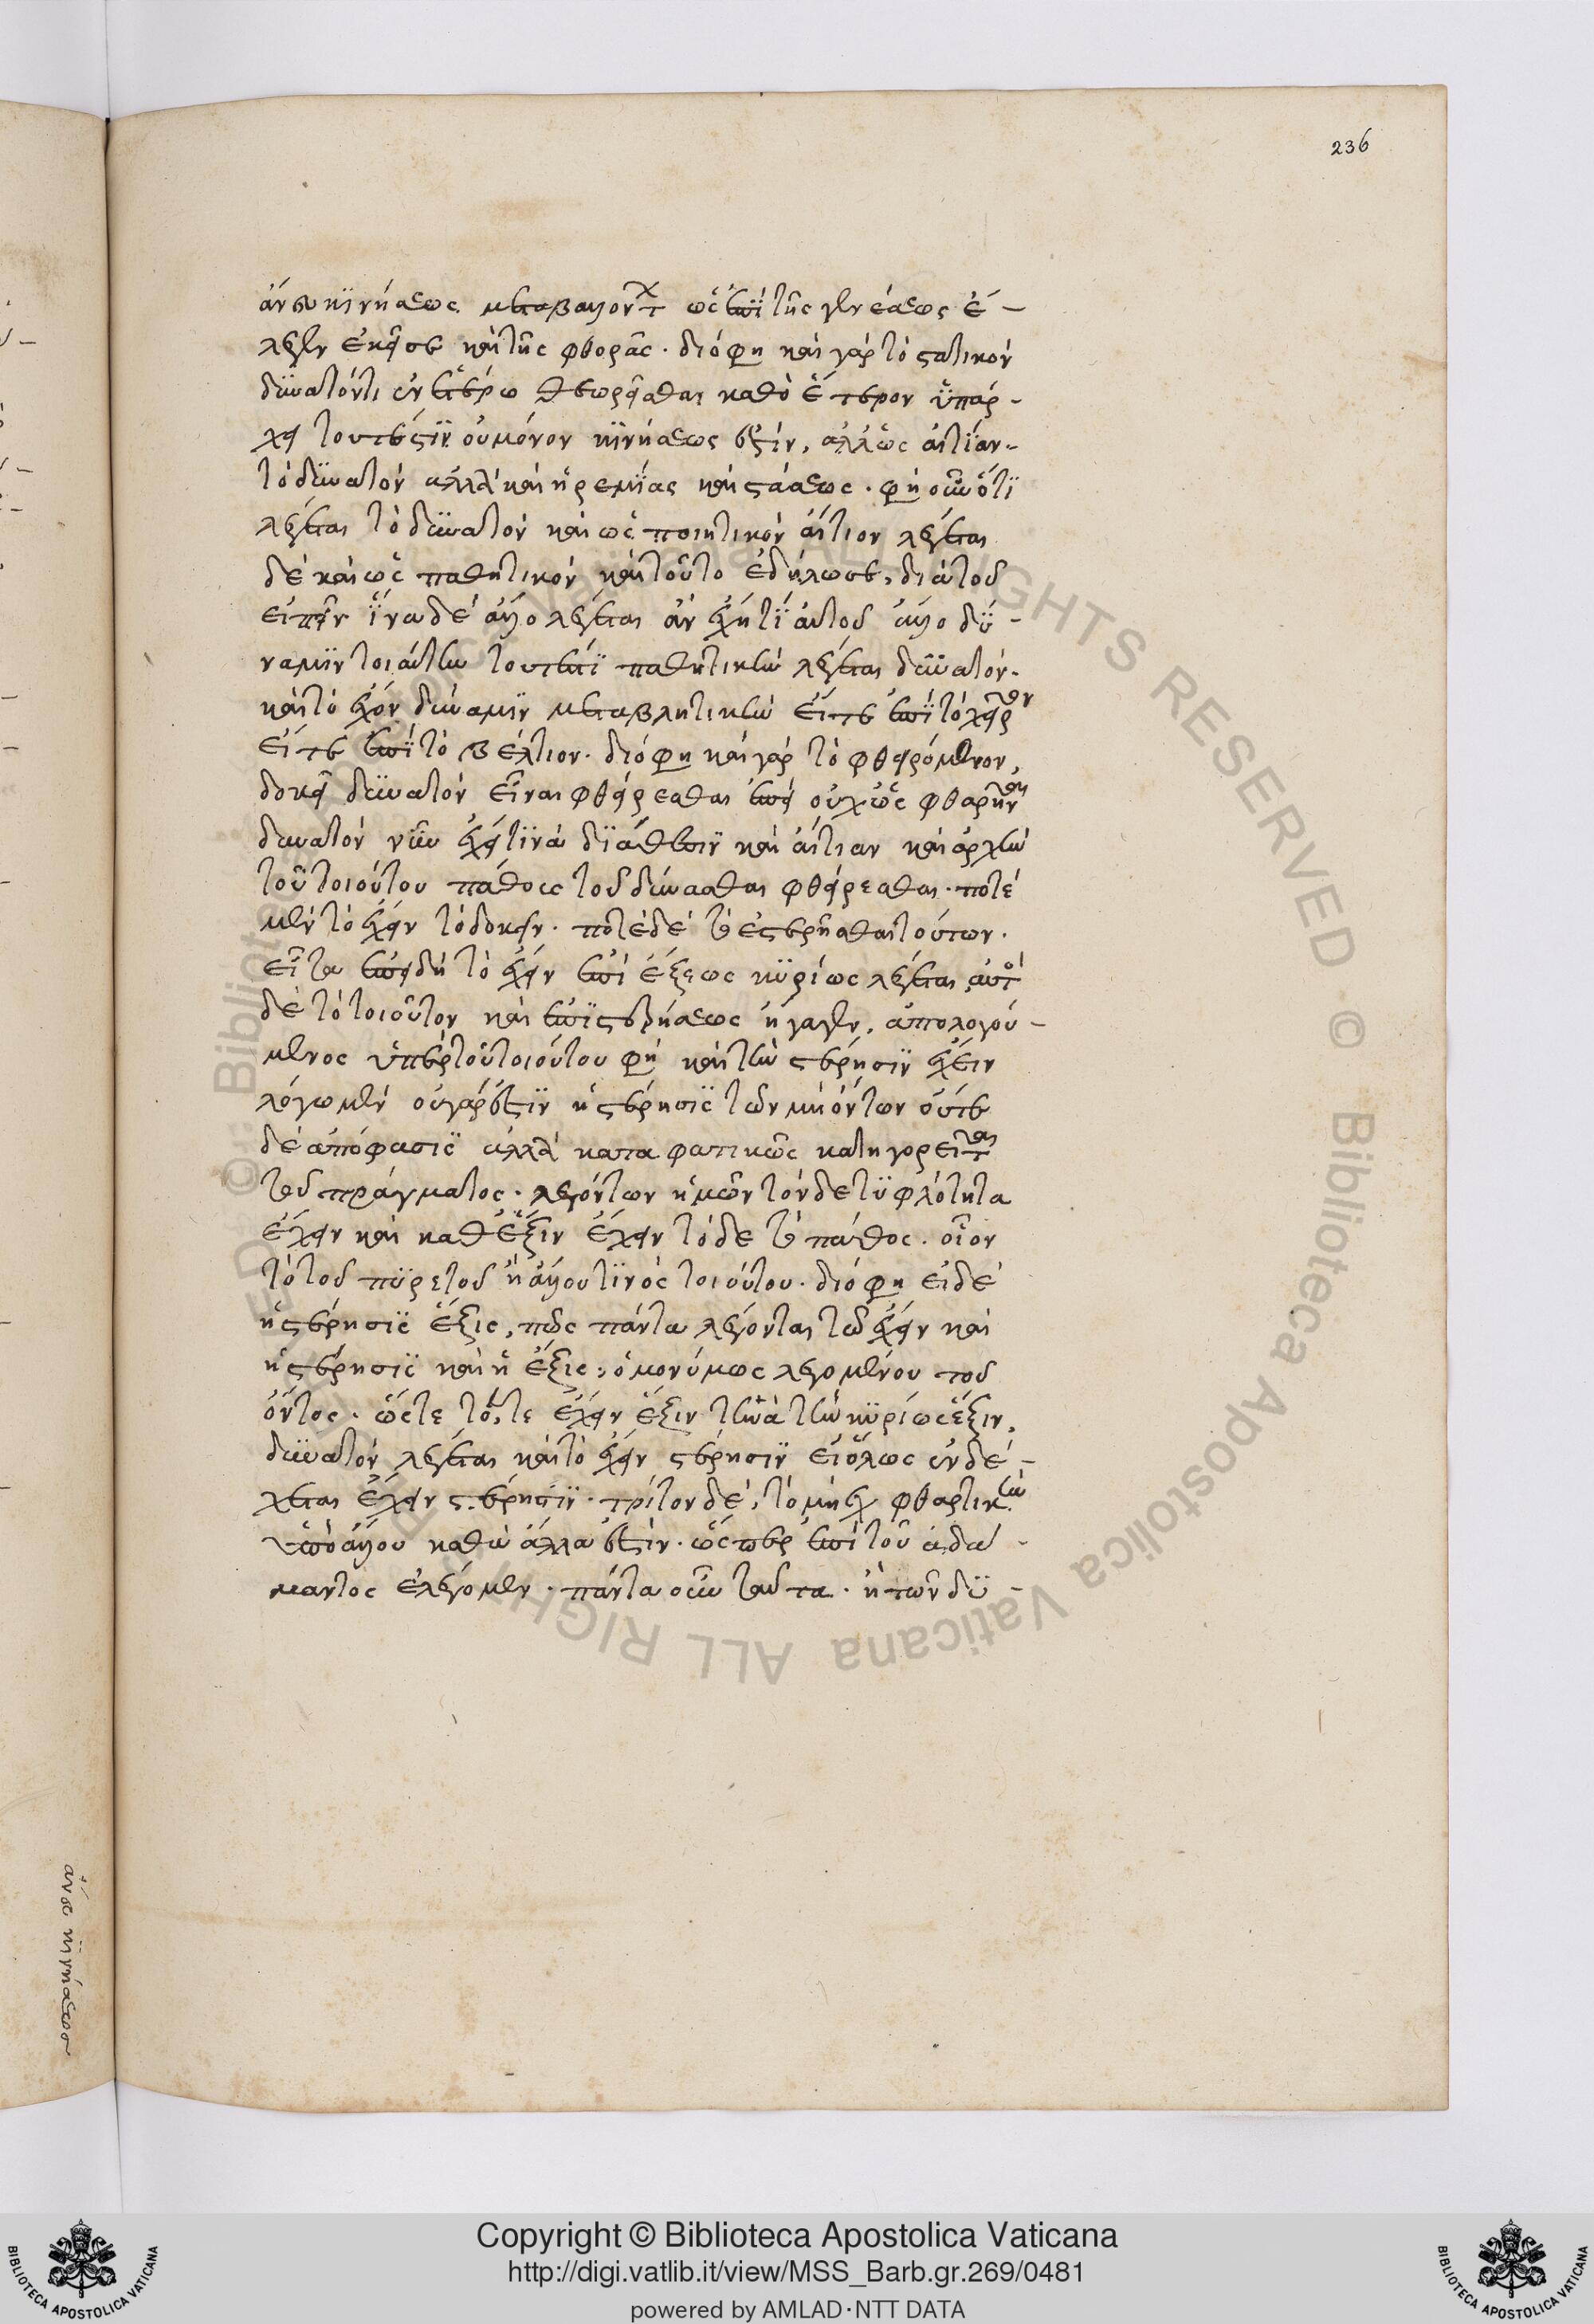 236
ἄνευ κϊνήσεως μεταβάλλοντ χ ὡς ἐπὶ τῆς γενέσεως ἔ-
λεγεν ἐκεῖσε καὶ τῆς φθορᾶς. διό φη καὶ γὰρ τὸ στατικὸν
δϋνατόν τι ἐν ἑτέρω θεωρεῖσθαι καθὸ ἕτερον ὑπάρ-
χει τουτέστϊν οὐ μόνον κϊνήσεως ἐστὶν, ἀλλ' ὡς αἰτίαν
τὸ δϋνατὸν ἀλλὰ καὶ ἠρεμΐας καὶ στάσεως. φὴ οὖν ὅτϊ
λέγεται τὸ δϋνατὸν καὶ ὡς ποιητικὸν αἴτιον λέγεται
δὲ καὶ ὡς παθητικὸν καὶ τοῦτο ἐδήλωσε, διὰ τοῦ
εἰπεῖν ἵνα δὲ ἄλλο λέγεται ἂν ἔχη τΐ αὐτοῦ ἄλλο δϋ-
ναμϊν τοιαύτην τουτέστϊ παθητικὴν λέγεται δϋνατόν.
καὶ τὸ ἔχον δύναμϊν μεταβλητικὴν εἴτε ἐπὶ τὸ χεῖρον
εἴτε ἐπὶ τὸ βέλτιον. διό φη καὶ γὰρ τὸ φθειρόμενον,
δοκεῖ δϋνατὸν εἶναι φθείρεσθαι ἐπεὶ οὐχ ὡς φθαρῆναι
δυνατὸν νῦν ἔχει τϊνὰ δϊάθεσιν καὶ αἰτίαν καὶ ἀρχὴν
τοῦ τοιούτου πάθους τοῦ δύνασθαι φθείρεσθαι. ποτὲ
μὲν τὸ ἔχειν τὸ δοκεῖν. ποτὲ δὲ τὸ ἐστερῆσθαι τούτων.
εἶτα ἐπειδὴ τὸ ἔχειν ἐπὶ ἕξεως κϋρίως λέγεται, αὐτὸ
δὲ τὸ τοιοῦτον καὶ ἐπὶ στερήσεως ἤγαγεν, ἀπολογού-
μενος ὑπὲρ τοῦ τοιούτου φὴ καὶ τὴν στέρησϊν ἔχειν
λέγωμεν οὐ γάρ ἐστϊν ἡ στέρησϊς τῶν μὴ ὄντων οὔτε
δὲ ἀπόφασϊς ἀλλὰ καταφατικῶς κατηγορεῖται
τοῦ πράγματος. λεγόντων ἡμῶν τόνδε τϋφλότητα
ἔχειν καὶ καθ' ἕξιν ἔχειν τόδε τὸ πάθος. οἷον
τὸ τοῦ πϋρετοῦ ἢ ἄλλου τϊνὸς τοιούτου. διό φη εἰ δὲ
ἡ στέρησϊς ἕξις, πῶς πάντα λέγονται τῷ ἔχειν καὶ
ἡ στέρησϊς καὶ ἡ ἕξις, ὁμονύμως λεγομένου τοῦ
ὄντος. ὥστε τό, τε ἔχειν ἕξιν τὴν κϋρίως ἕξιν,
δϋνατὸν λέγεται καὶ τὸ ἔχειν στέρησϊν εἰ ὅλως ἐνδέ-
χεται ἔχειν στέρησϊν. τρίτον δὲ, τὸ μὴ ἔχειν φθαρτικὴν
ὑπὸ ἄλλου καθὼ ἄλλα ἐστὶν. ὥσπερ ἐπὶ τοῦ ἀδά-
μαντος ἐλέγομεν. πάντα οὖν ταῦτα. ἢ τῶν δϋ-
ἄνευ κϊνήσεως
Copyright © Biblioteca Apostolica Vaticana
http://digi.vatlib.it/view/MSS_Barb.gr.269/0481
powered by AMLAD·NTT DATA
BIBLIOTECA APOSTOLICA VATICANA
BIBLIOTECA APOSTOLICA VATICANA